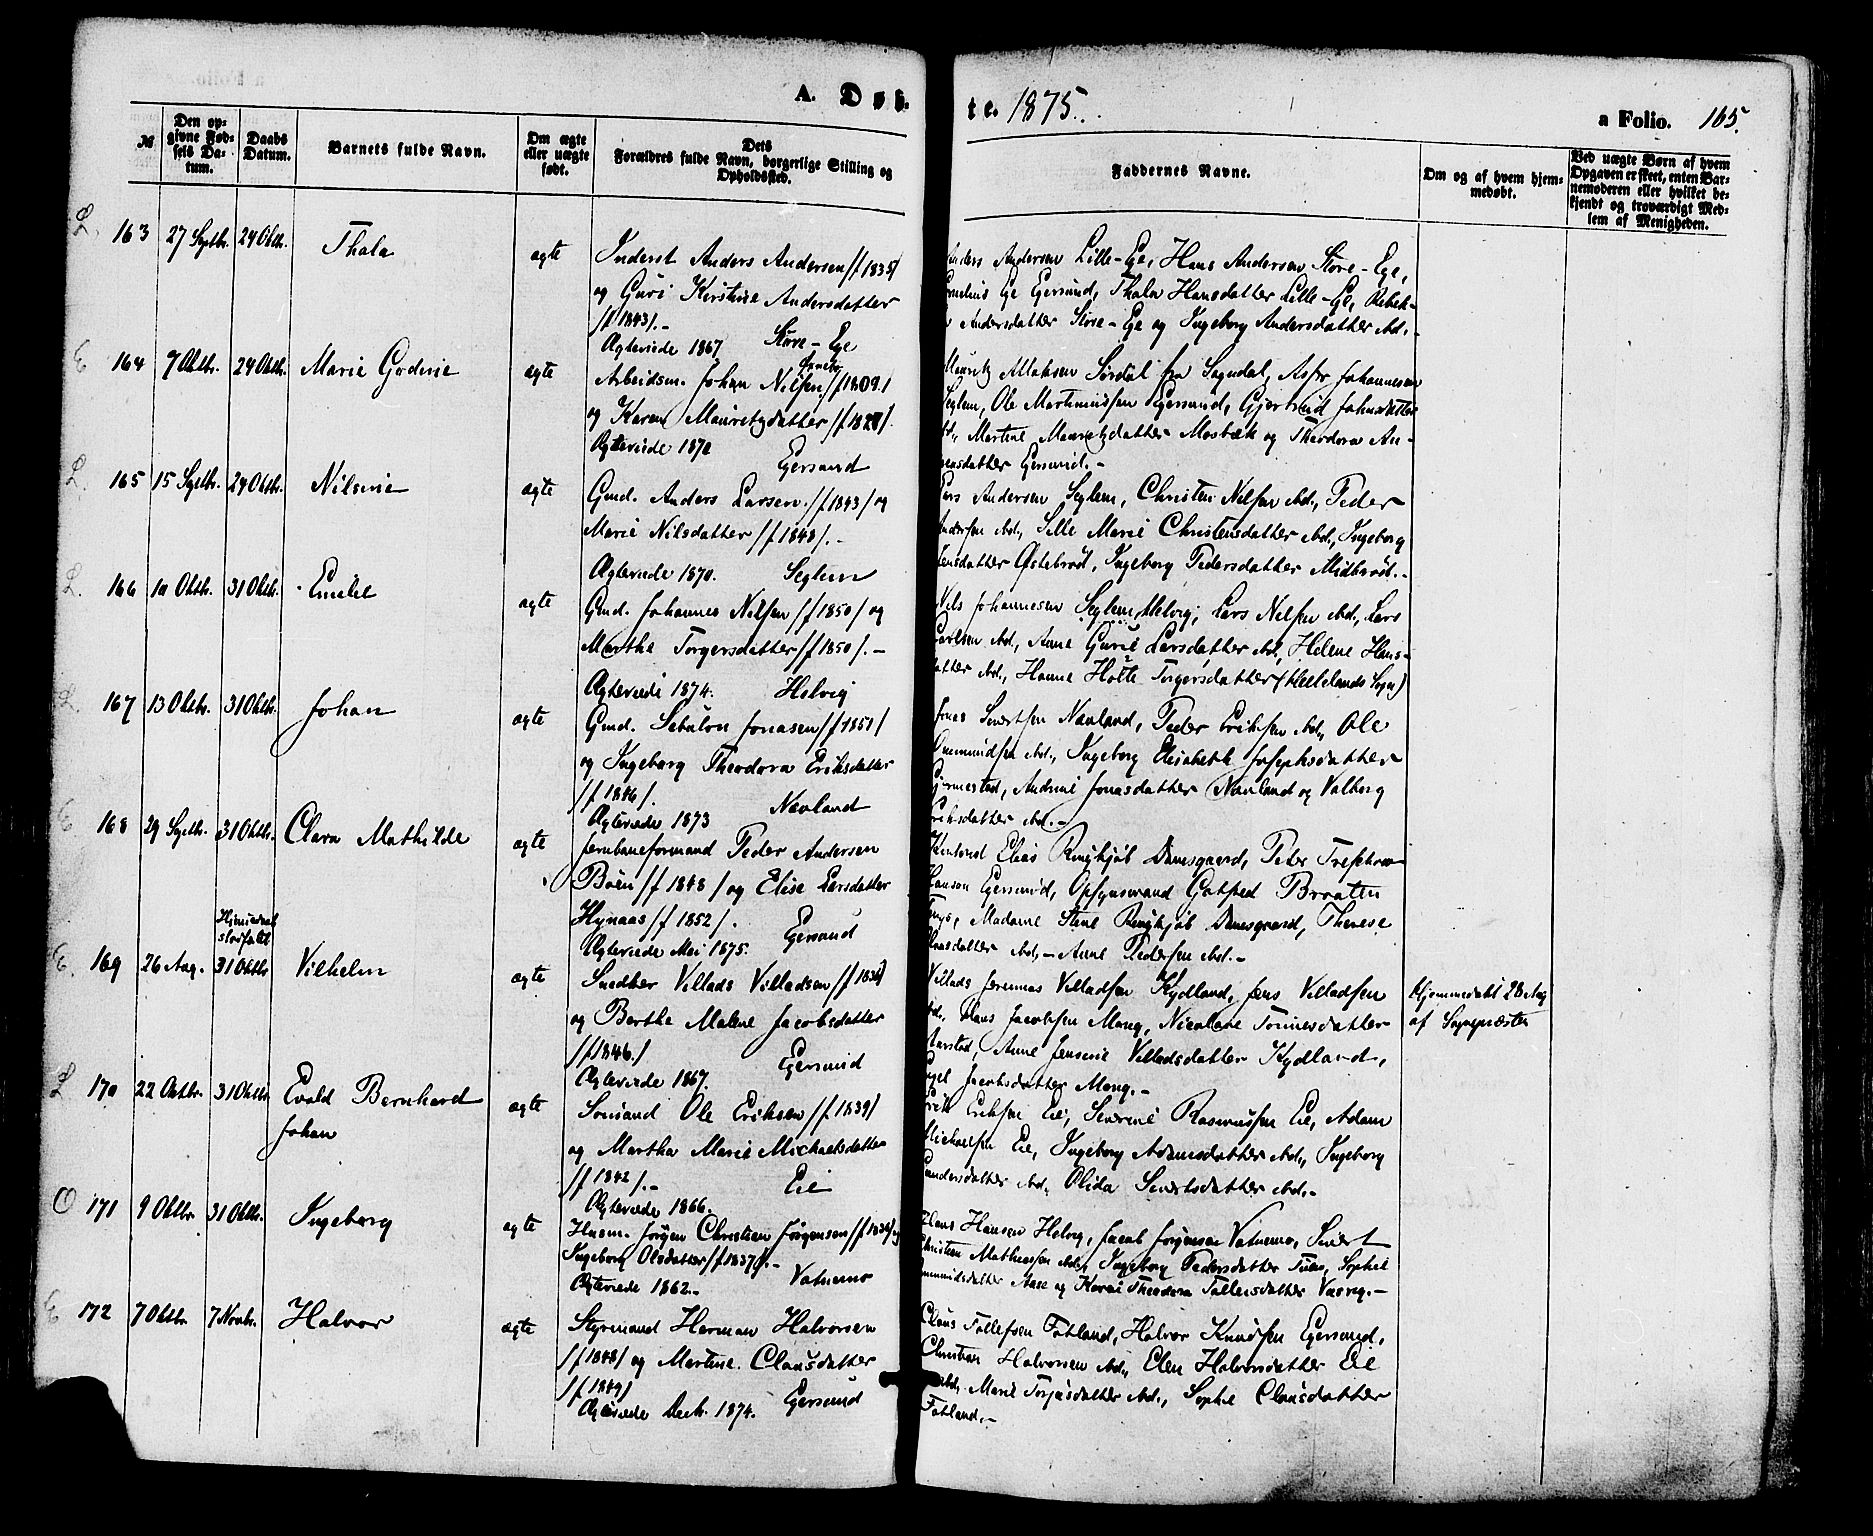 A. Døb-
te. 1875.
a Folio. 165.
№
Den opgivne Fødsels Datum.
Daabs Datum.
Barnets fulde Navn.
Om ægte eller uægte født.
Dets Forældres fulde Navn, borgerlige Stilling og Opholdssted.
Faddernes Navne.
Om og af hvem hjemmedøbt.
Ved uægte Børn af hvem Opgaven er skeet, enten Barnemoderen eller hvilket bekjendt og troværdigt Medlem af Menigheden.
L. 163 27 Septbr. 24 Oktbr. Thala ægte
Inderst Anders Andersen /f 1835/
og Guri Kirstine Andersdatter
/f 1843/.-
Ægteviede 1867. Store-Ege
Anders Andersen Lille-Ege, Hans Andersen Store-Ege,
Cornelius Ege Egersund, Thala Hansdatter Lille-Ege, Rebek-
Andersdatter Store-Ege og Ingeborg Andersdatter ibd.-
E 164 7 Oktbr. 24 Oktbr. Marie Godine ægte
Arbeidsm. Johan Nilsen /f 1809/
og Karen Mauritzdatter /f 1827/.
Ægteviede 1870 Egersund
Mauritz Sørdal fra Sogndal, Johannesen
Seglem, Ole Martiniussen Egersund, Gjertrud Johnsdatter
ibd., Martine Mauritzdatter Mosbæk og Theodora An-
Egersund.-
L. 165 15 Septbr. 24 Oktbr. Nilsine ægte
Gmd. Anders Larsen /f 1843/ og
Marie Nilsdatter /f 1848/.-
Ægteviede 1870. Seglem
Lars Andersen Seglem, Christen Nilsen ibd., Peder
Andersen ibd., Sille Marie Christensdatter ibd., Ingeborg
Østebrød, Ingeborg Pedersdatter Midbrød.-
L. 166 10 Oktbr. 31 Oktbr. Emilie ægte
Gmd. Johannes Nilsen /f 1850/ og
Marthe Torgersdatter /f 1850/.-
Ægteviede 1874. Helvig
Nils Johannesen Seglem Helvig, Lars Nilsen ibd., Lars
Carlsen ibd., Anne Gurie Larsdatter ibd., Helene Hans-
datter ibd., Hanne Holte Torgersdatter (Hellelands Sogn)
L. 167 13 Oktbr. 31 Oktbr. Johan ægte
Gmd. Sebulon Jonasen /f 1851/
og Ingeborg Theodora Eriksdatter
/f 1846/.
Ægteviede 1873 Navland
Jonas Sivertsen Navland, Peder Eriksen ibd., Ole
Ommundsen ibd., Ingeborg Elisabeth Josephsdatter
Gjermestad, Andrine Jonasdatter Navland og Valborg
Eriksdatter ibd.-
E 168 29 Septbr. 31 Oktbr. Clara Mathilde ægte
Jernbaneformand Peder Andersen
Böen /f 1848/ og Elise Larsdatter
Hynaas /f 1852/.
Ægteviede Mai 1875. Egersund
Elias Ringkjöb Damsgaard, Peter
Hansen Egersund, Opsynsmand Gotfred Braaten
Madame Stene Ringkjöb Damsgaard, Therese
Hansdatter ibd.,- Anne Pedersen ibd.-
E. 169 26 Aug. Hjemmedaab stadfæstet 31 Oktbr. Vilhelm ægte
Snedker Villads Villadsen /f 1836/
og Berthe Malene Jacobsdatter
/f 1846./
Ægteviede 1867. Egersund
Villads Jeremias Villadsen Kydland, Jens Villadsen
ibd., Hans Jacobsen Mong, Nicoline Tønnesdatter
Aarstad, Anne Jensine Villadsdatter Kydland,
Jacobsdatter Mong.-
Hjemmedøbt 28 Aug
af Sognepræsten
L 170 22 Oktbr. 31 Oktbr. Evald Bernhard
Johan ægte
Sömand Ole Eriksen /f 1839/
og Martha Marie Michaelsdatter
/f 1842/.-
Ægteviede 1866. Eie
Erik Eriksen Eie, Severine Rasmussen Eie, Adam
Michaelsen Eie, Ingeborg Adamsdatter ibd., Ingeborg
Gundersdatter ibd., Olida Sivertsdatter ibd.-
O 171 9 Oktbr. 31 Oktbr. Ingeborg ægte
Husm. Jörgen Christian Jörgensen /f 1834/ og
Ingeborg Olsdatter /f 1837/.-
Ægteviede 1862.- Vatnemo
Hans Hansen Helvig, Jacob Jörgensen Vatnemo, Sivert
Christian Mathiassen ibd., Ingeborg Pedersdatter Tuen, Sophie
Ommundsdatter Aase og Karen Theodora Tollersdatter
E 172 7 Oktbr. 7 Novbr. Halvor ægte
Styrmand Herman Halvorsen
/f 1848/ og Martine Clausdatter
/f 1849/
Ægteviede Decb. 1874. Egersund
Claus Tollefsen Fotland, Halvor Knudsen Egersund,
Christian Halvorsen ibd., Elen Halvorsdatter Eie
ibd., Marie Torjusdatter ibd., Sophie Clausdatter
Fotland.-